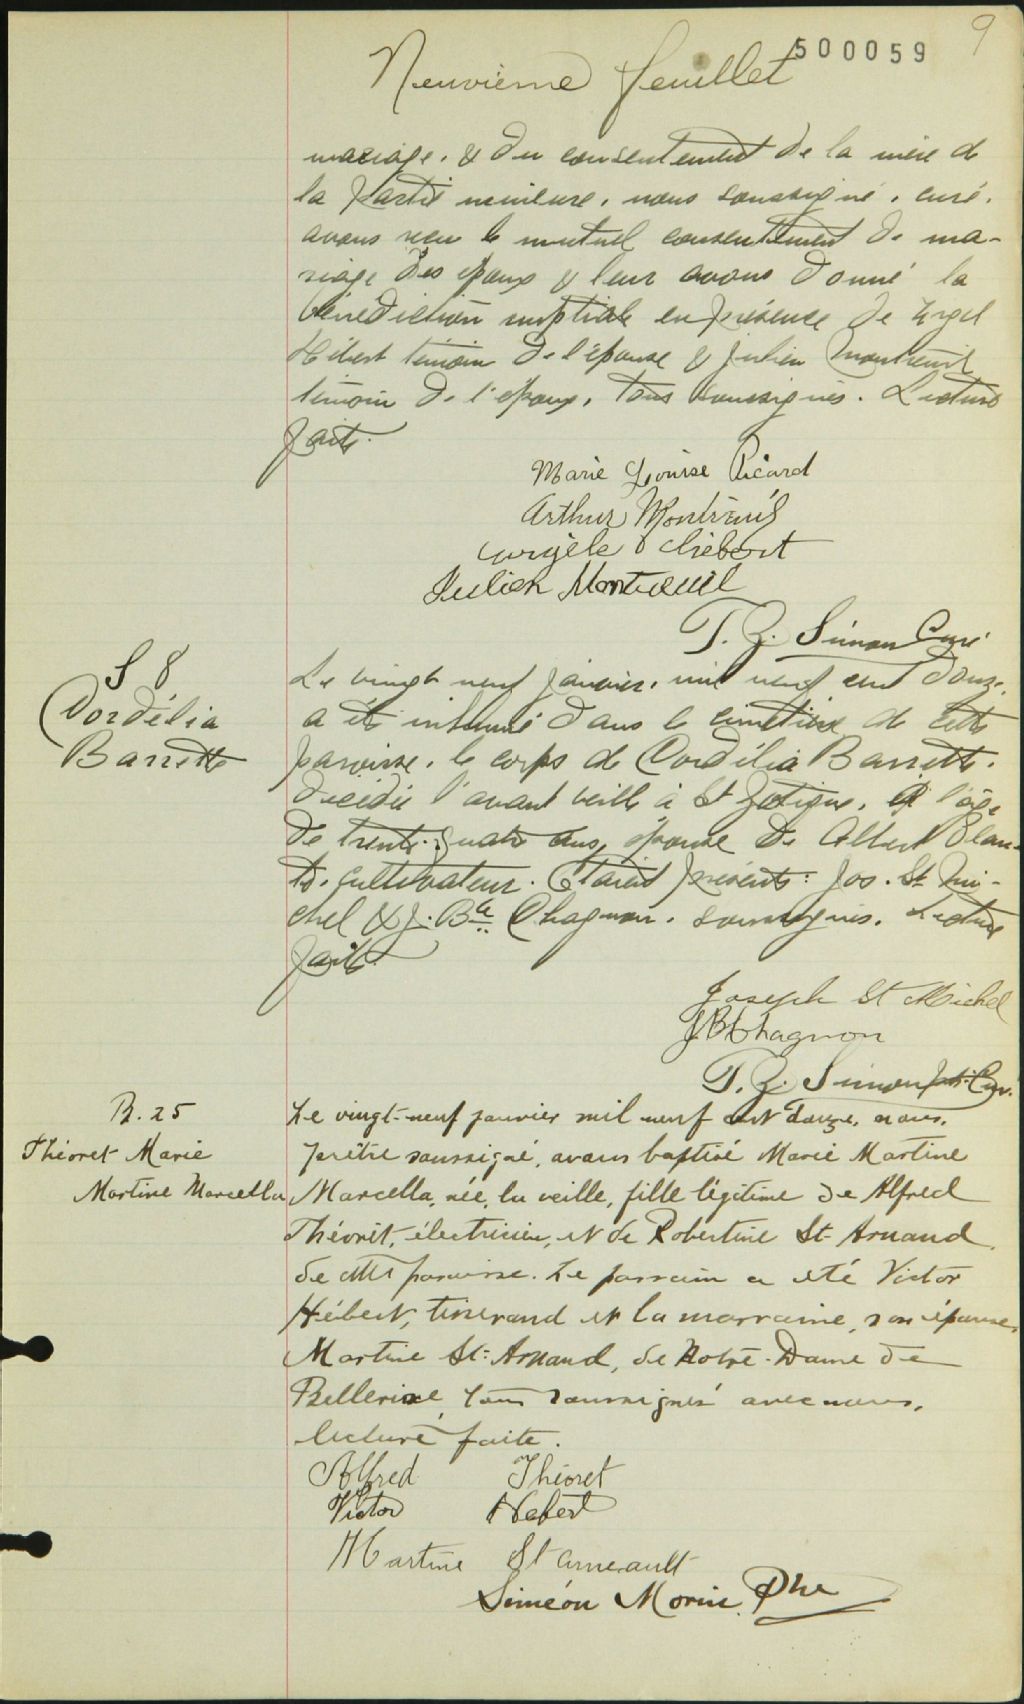 9
500059
Neuvième feuillet
mariage, & du consentement de la mère de
la partie mineure, nous soussigné, curé,
avons reçu le mutuel consentement de ma-
riage des époux & leur avons donné la
bénédiction nuptiale en présence de Urgel
Hébert témoin de l'épouse & Julien Montreuil
témoin de l'époux, tous soussignés. Lecture
faite.
Marie Louise Picard
Arthur Montreuil
Hébert
Julien Montreuil
T. Z. Simon Curé
S 8
Cordélia
Barrette
Le vingt neuf janvier, mil neuf cent douze,
a été inhumé dans le cimetière de cette
paroisse, le corps de Cordélia Barrette,
décédée l'avant veille à St Zotique, à l'âge
de trente-quatre ans, épouse de Albert Plan-
te, cultivateur. Etaient présents: Jos. St Mi-
chel & J. Bte Chagnon, soussignés. Lecture
faite.
Joseph St Michel
JBChagnon
T. Z. Simon ptr. Cur.
B. 25
Théoret Marie
Martine Marcella
Le vingt-neuf janvier mil neuf cent douze, nous,
prêtre soussigné, avons baptisé Marie Martine
Marcella, née, la veille, fille légitime de Alfred
Théorêt, électricien, et de Robertine St-Arnaud,
de cette paroisse. Le parrain a été Victor
Hébert, tisserand et la marraine, son épouse,
Martine St-Arnaud, de Notre-Dame de
Bellerive, tous soussignés avec nous,
lecture faite.
Alfred Théoret
Victor Hebert
Martine St arneault
Siméon Morin, Ptre